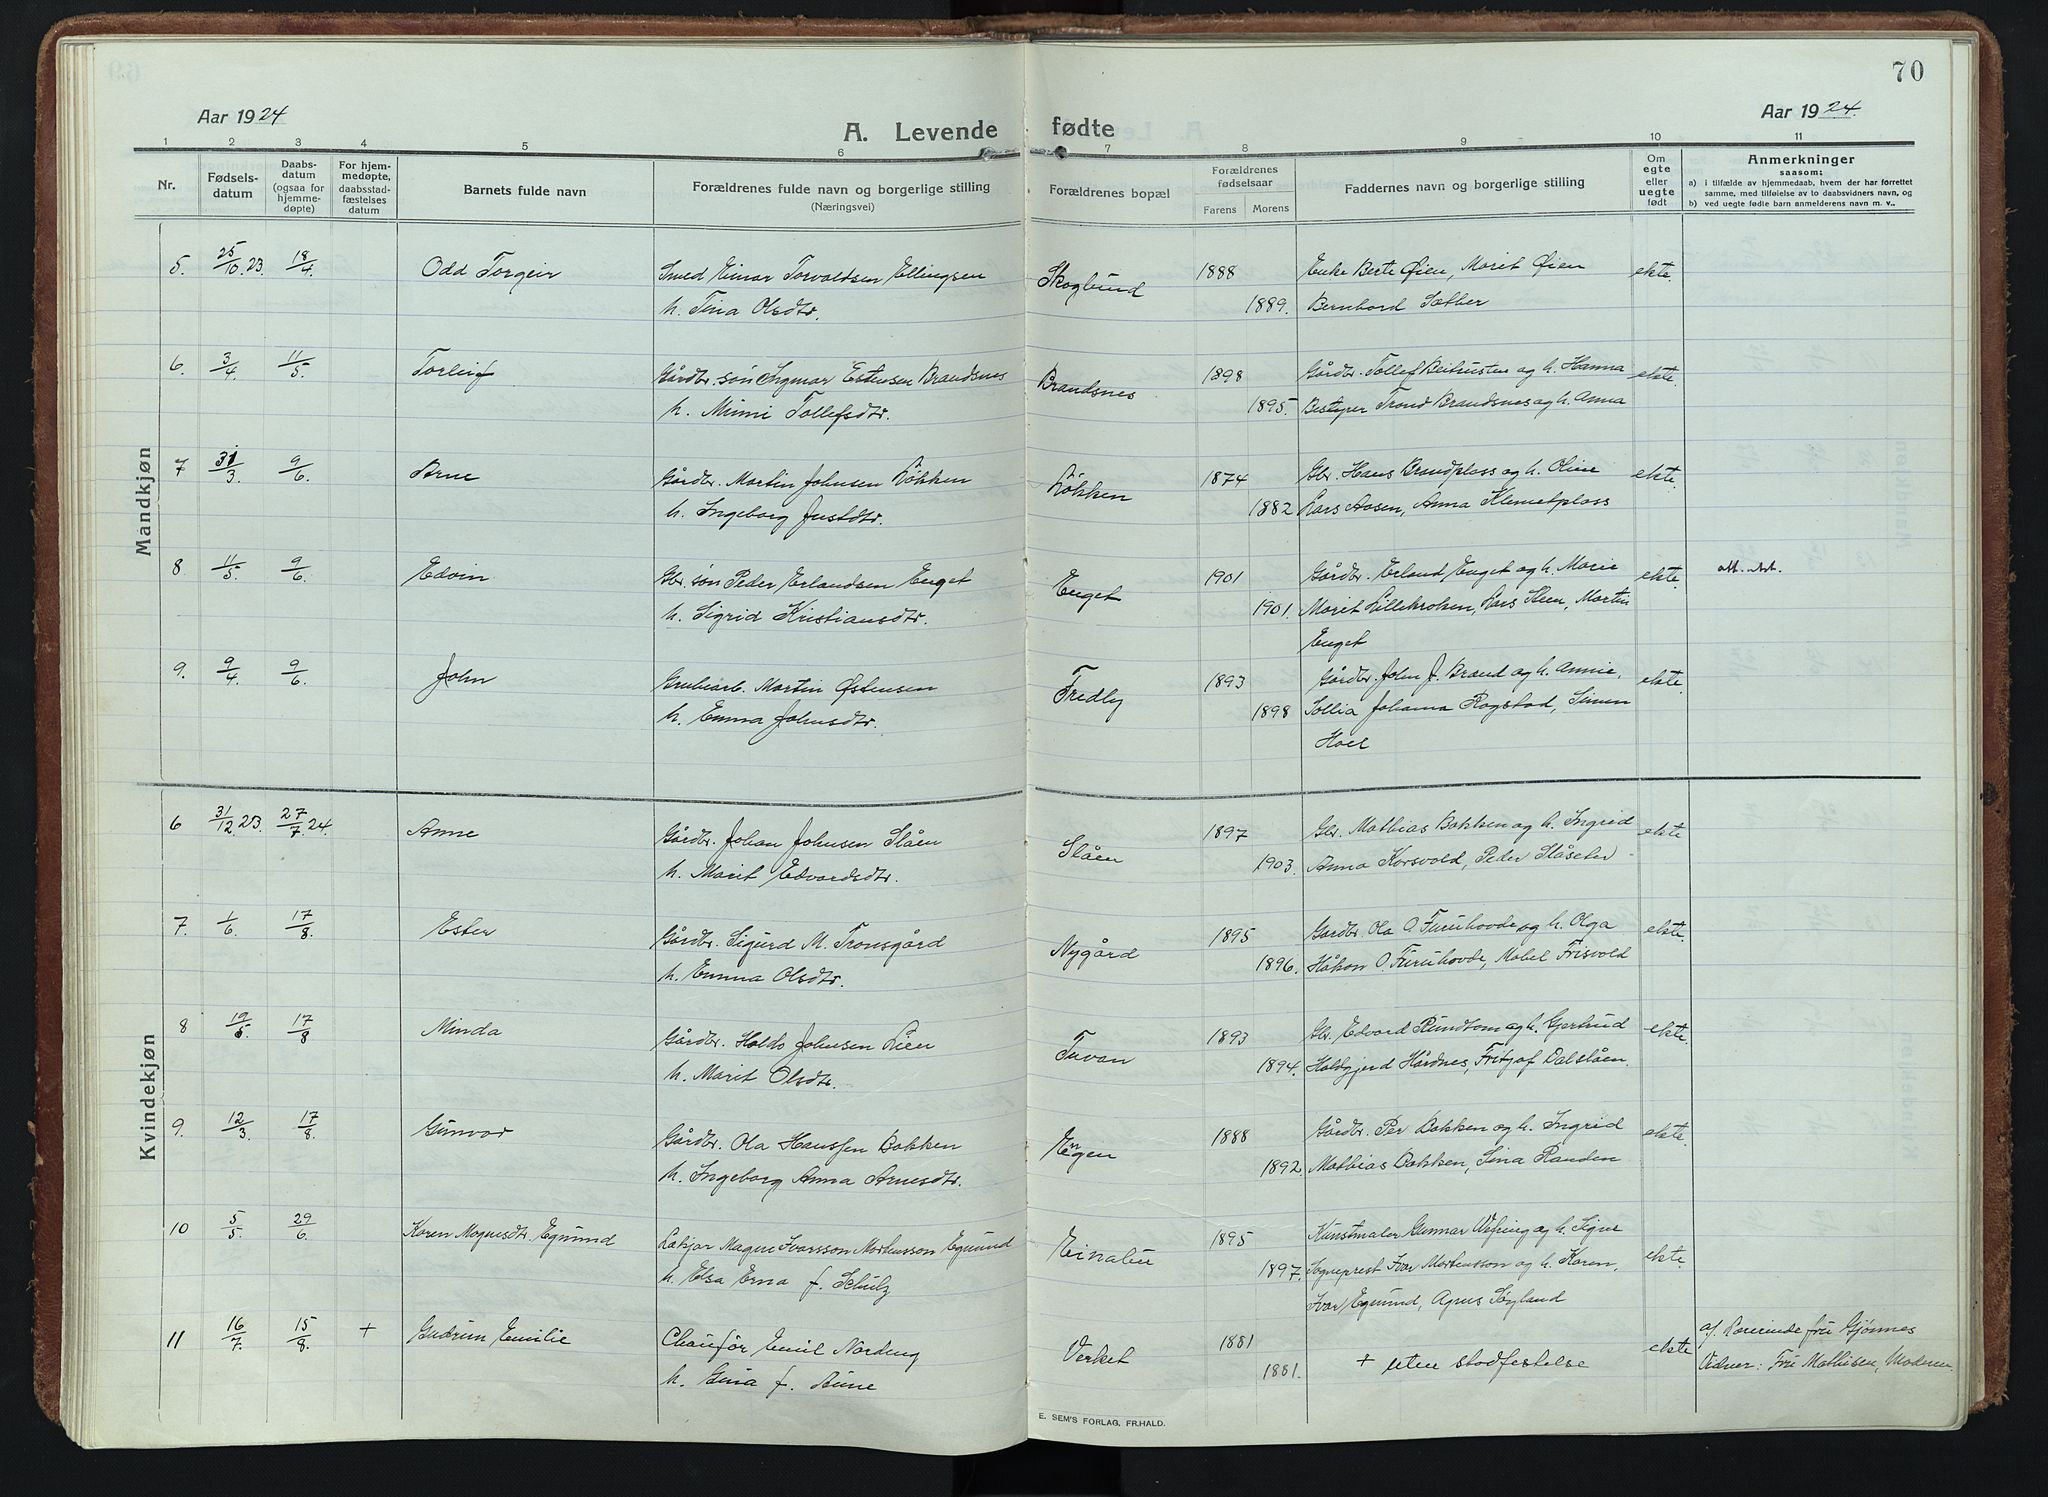 70
Aar 1924
A. Levende fødte
Aar 1924.
1 2 3 4 5 6 7 8 9 10 11
Nr.
Fødsels-
datum
Daabs-
datum
(ogsaa for
hjemme-
døpte)
For hjem-
medøpte,
daabsstad-
fæstelses
datum
Barnets fulde navn
Forældrenes fulde navn og borgerlige stilling
(Næringsvei)
Forældrenes bopæl
Forældrenes
fødselsaar
Farens Morens
Faddernes navn og borgerlige stilling
Om
egte
eller
uegte
født
Anmerkninger
saasom:
a) i tilfælde av hjemmedaab, hvem der har forrettet
samme, med tilføielse av to daabsvidners navn, og
b) ved uegte fødte barn anmelderens navn m. v..
Mandkjøn
5. 25/10.23. 18/4. Odd Torgeir Smed Einar Torvaldsen Ellingsen Skoglund 1888 Enke Berte Øien, Marit Øien ekte.
h. Tina Olsdtr. 1889. Bernhard Sæther
6. 3/4. 11/5. Torleif Gårdbr. søn Ingmar Estensen Brandsnes Brandsnes 1898 Gårdbr. Tollef Beitrusten og h. Hanna ekte.
h. Minni Tollefsdtr. 1895. Bestyrer Trond Brandsnes og h. Anna
7 31/3. 9/6. Arne Gårdbr. Martin Johnsen Løkken Løkken 1874 Gbr. Hans Brandplass og h. Oline ekte.
h. Ingeborg Justdtr. 1882 Lars Aasen, Anna Klemetplass
8 11/5. 9/6. Edvin Gbr. søn Peder Erlandsen Enget Enget 1901 Gårdbr. Erland Enget og h. Marie ekte. att. utst.
h. Sigrid Kristiansdtr. 1901. Marit Lillekroken, Lars Steen, Martin
Enget
9. 9/4 9/6. John Grubearb. Martin Østensen Fredly 1893 Gårdbr. John J. Brænd og h. Annie, ekte.
h. Emma Johnsdtr. 1898 Sollia Johanna Rogstad, Simen
Hoel
Kvindekjøn
6 31/12.23. 27/7.24. Anne Gårdbr. Johan Johnsen Slåen Slåen 1897 Gbr. Mathias Bakken og h. Ingrid ekte
h. Marit Edvardsdtr. 1903. Anna Korsvold, Peder Slåseter
7. 1/6. 17/8. Ester Gårdbr. Sigurd M. Tronsgård Nygård 1895 Gårdbr. Ola O Furuhovde og h. Olga ekte.
h. Emma Olsdtr. 1896. Håkon O Furuhovde, Mabel Frisvold
8 19/5. 17/8 Minda Gårdbr. Haldo Johnsen Lien Tuvan 1893 Gbr. Edvard Rundtom og h. Gjertrud ekte.
h. Marit Olsdtr. 1894. Haldgjerd Hårdnes, Fritjof Dalslåen.
9. 12/3. 17/8. Gunvor Gårdbr. Ola Hanssen Bakken Engen 1888 Gårdbr. Per Bakken og h. Ingrid ekte.
h. Ingeborg Anna Arnesdtr. 1892. Mathias Bakken, Lina Randen
10 5/5. 29/6. Karen Magnesdtr. Egnund Lækjar Magne Ivarsson Mortensson Egnund Einalie 1895 Kunstmaler Gunnar Wefring og h. Signe
h. Elsa Erna f. Schulz 1897. Sogneprest Ivar Mortensson og h. Karen, ekte.
Ivar Egnund, Agnes Søyland
11 16/7. 15/8. + Gudrun Emilie Chaufør Emil Nordeng Verket 1881 + uten stadfestelse ekte af. Lærerinde fru Gjønnes
h. Gina f. Aune 1881. Vidner: Fru Mathisen, Moderen.
E. SEM'S FORLAG, FR.HALD.